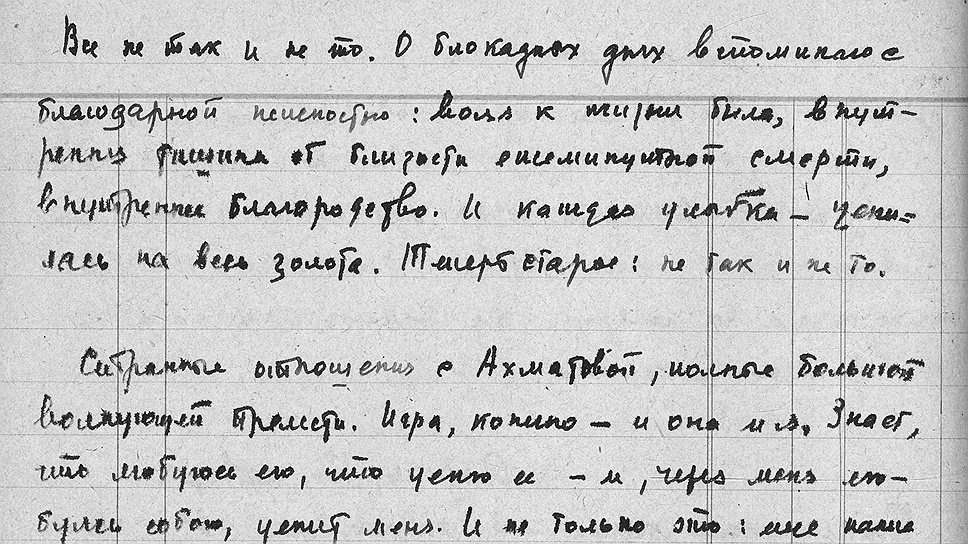 Все не так и не то. О блокадных днях вспоминаю с
благодарной нежностью: воля к жизни была, внут-
ренняя тишина от близости ежеминутной смерти,
внутреннее благородство. И каждая улыбка – цени-
лась на весь золота. Теперь старое: не так и не то.
Странные отношения с Ахматовой, полные большой
волнующей прелести. Игра, конечно – и она и я. Знает,
что любуюсь ею, что ценю ее – и, через меня лю-
буясь собою, ценит меня. И не только это: еще